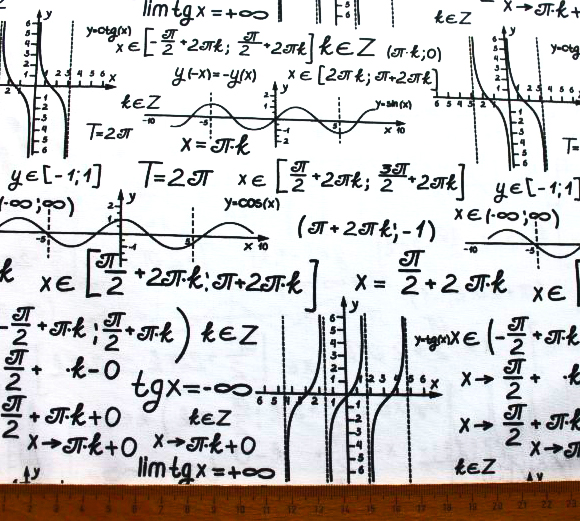 lim tgx=+∞
k∈Z
x→π·k+
y=ctg(x)
x∈[-π/2+2πk; π/2+2πk] k∈Z (π·k;0)
y(-x)=-y(x) x∈[2πk; π+2πk]
k∈Z
y=sin(x)
x=π·k
T=2π
y∈[-1;1] T=2π x∈[π/2+2πk; 3π/2+2πk]
y∈[-1;1]
(-∞;∞) y=cos(x)
(π+2πk;-1)
x∈(-∞;∞)
k x∈[π/2+2π·k;π+2π·k] x=π/2+2π·k x∈
-π/2+π·k;π/2+π·k) k∈Z
y=tg(x)
x∈(-π/2+π·k
π/2+ ·k-0
x→π/2+ ·k
tgx=-∞
π/2+π·k+0 k∈Z
x→π/2+π·k
x→π·k+0 x→π·k+0
x→π·k
lim tgx=+∞
k∈Z